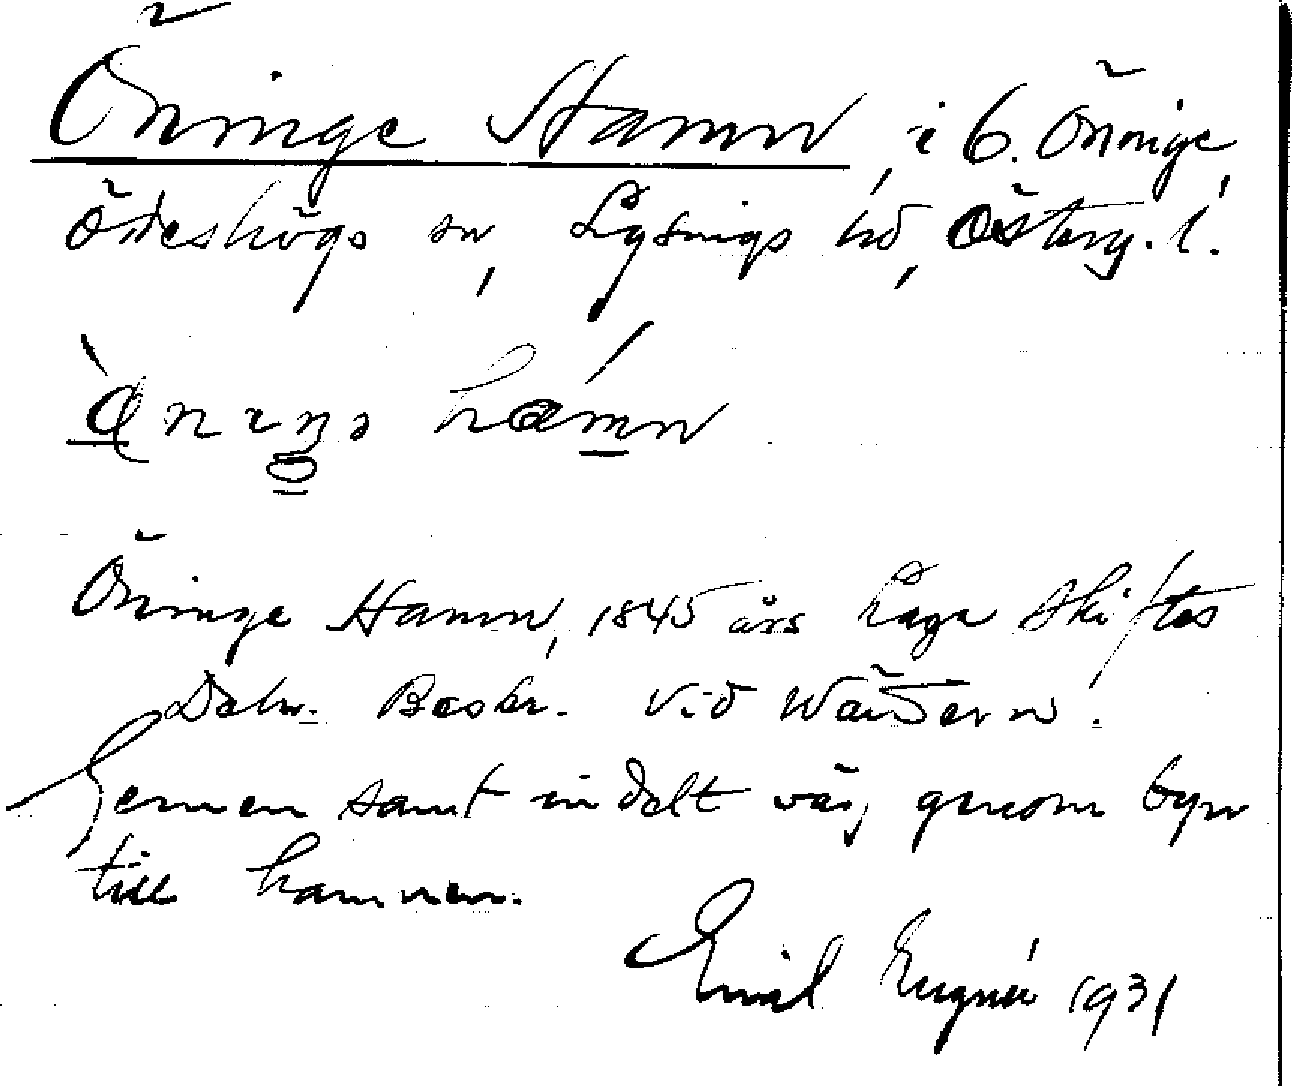 Öninge Hamn, i b. Öninge,
Ödeshögs sn, Lysings hd, Österg. l.
hamn
Öninge Hamn, 1845 års Laga Skiftes
Deln. Beskr. vid Wättern.
samt indelt väg genom byn
till hamnen.
Emil 1931